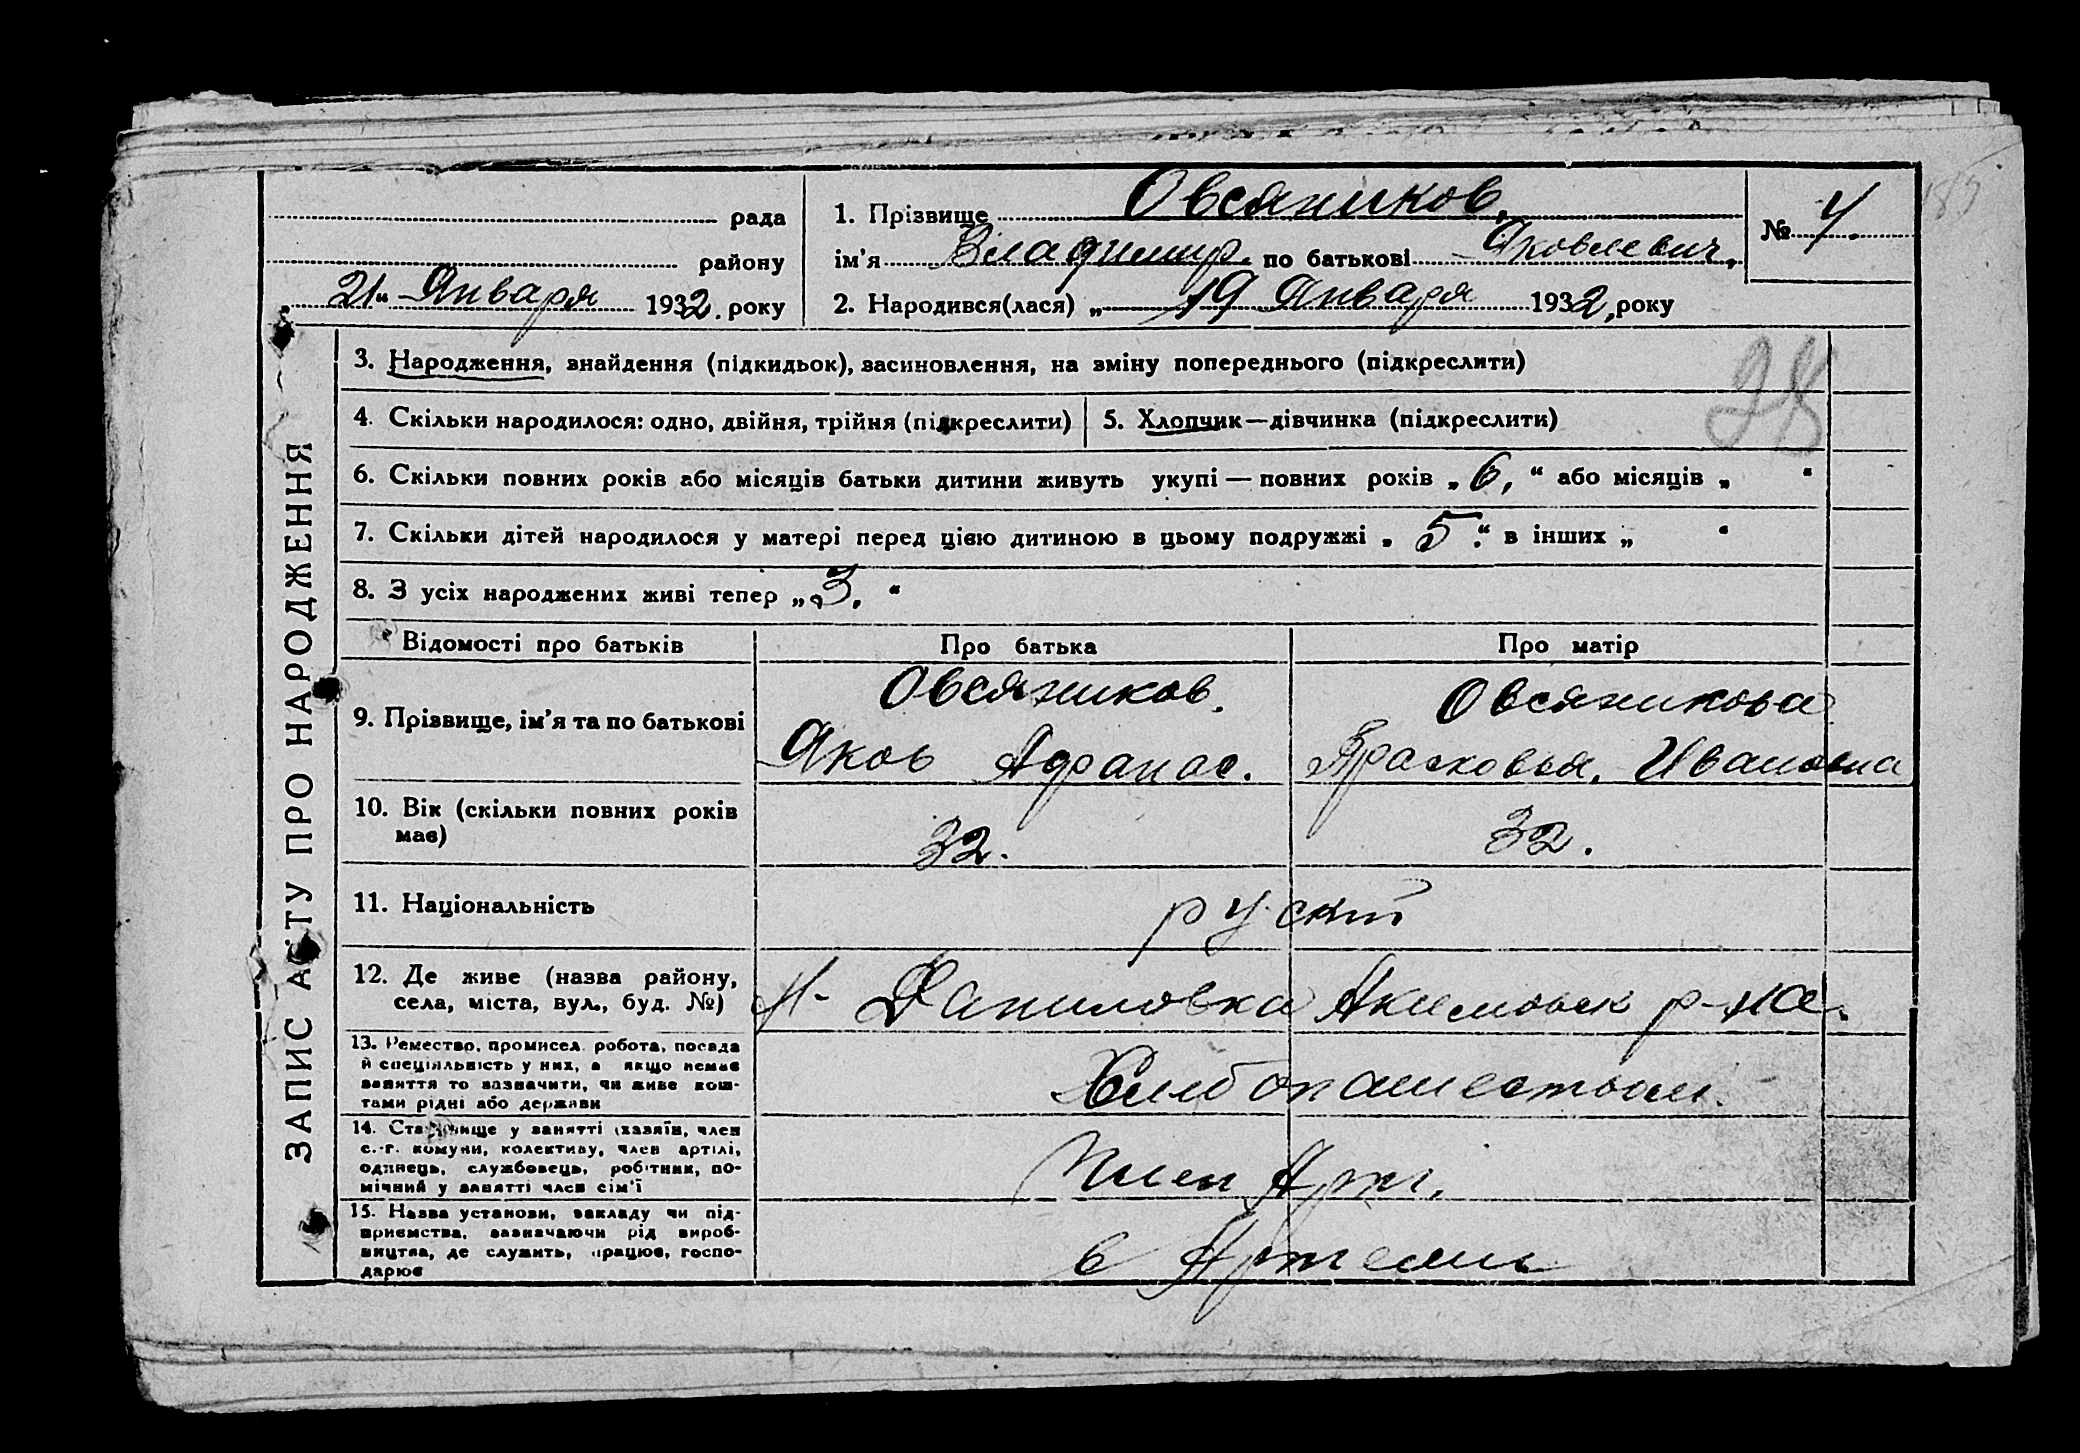 рада
району
„21“ Января 1932. року
1. Прізвище Овсяников,
ім'я Владимир. по батькові Яковлевич,
2. Народився(лася) „19 Января 1932, року
№ 4.
ЗАПИС АКТУ ПРО НАРОДЖЕННЯ
3. Народження, знайдення (підкидьок), засиновлення, на зміну попереднього (підкреслити)
28
4. Скільки народилося: одно, двійня, трійня (підкреслити)
5. Хлопчик—дівчинка (підкреслити)
6. Скільки повних років або місяців батьки дитини живуть укупі — повних років „6,“ або місяців „ “
7. Скільки дітей народилося у матері перед цією дитиною в цьому подружжі „5.“ в інших „ “
8. З усіх народжених живі тепер „3.“
Відомості про батьків
Про батька
Про матір
9. Прізвище, ім'я та по батькові
Овсяников.
Яков Афанас.
Овсяникова
Прасковья. Ивановна
10. Вік (скільки повних років
має)
32.
32.
11. Національність
рускі
12. Де живе (назва району,
села, міста, вул., буд. №)
Н- Даниловка Акимовск р-на.
13. Ремество, промисел, робота, посада
й спеціяльність у них, а якщо немає
заняття то зазначити, чи живе кош-
тами рідні або держави
Хлибопашеством.
14. Становище у занятті (хазяїн, член
с.-г. комуни, колективу, член артілі,
одинець, службовець, робітник, по-
мічний у занятті член сім'ї
Член Арт.
15. Назва установи, закладу чи під-
приємства, зазначаючи рід вироб-
ництва, де служить, працює, госпо-
дарює
в Артели